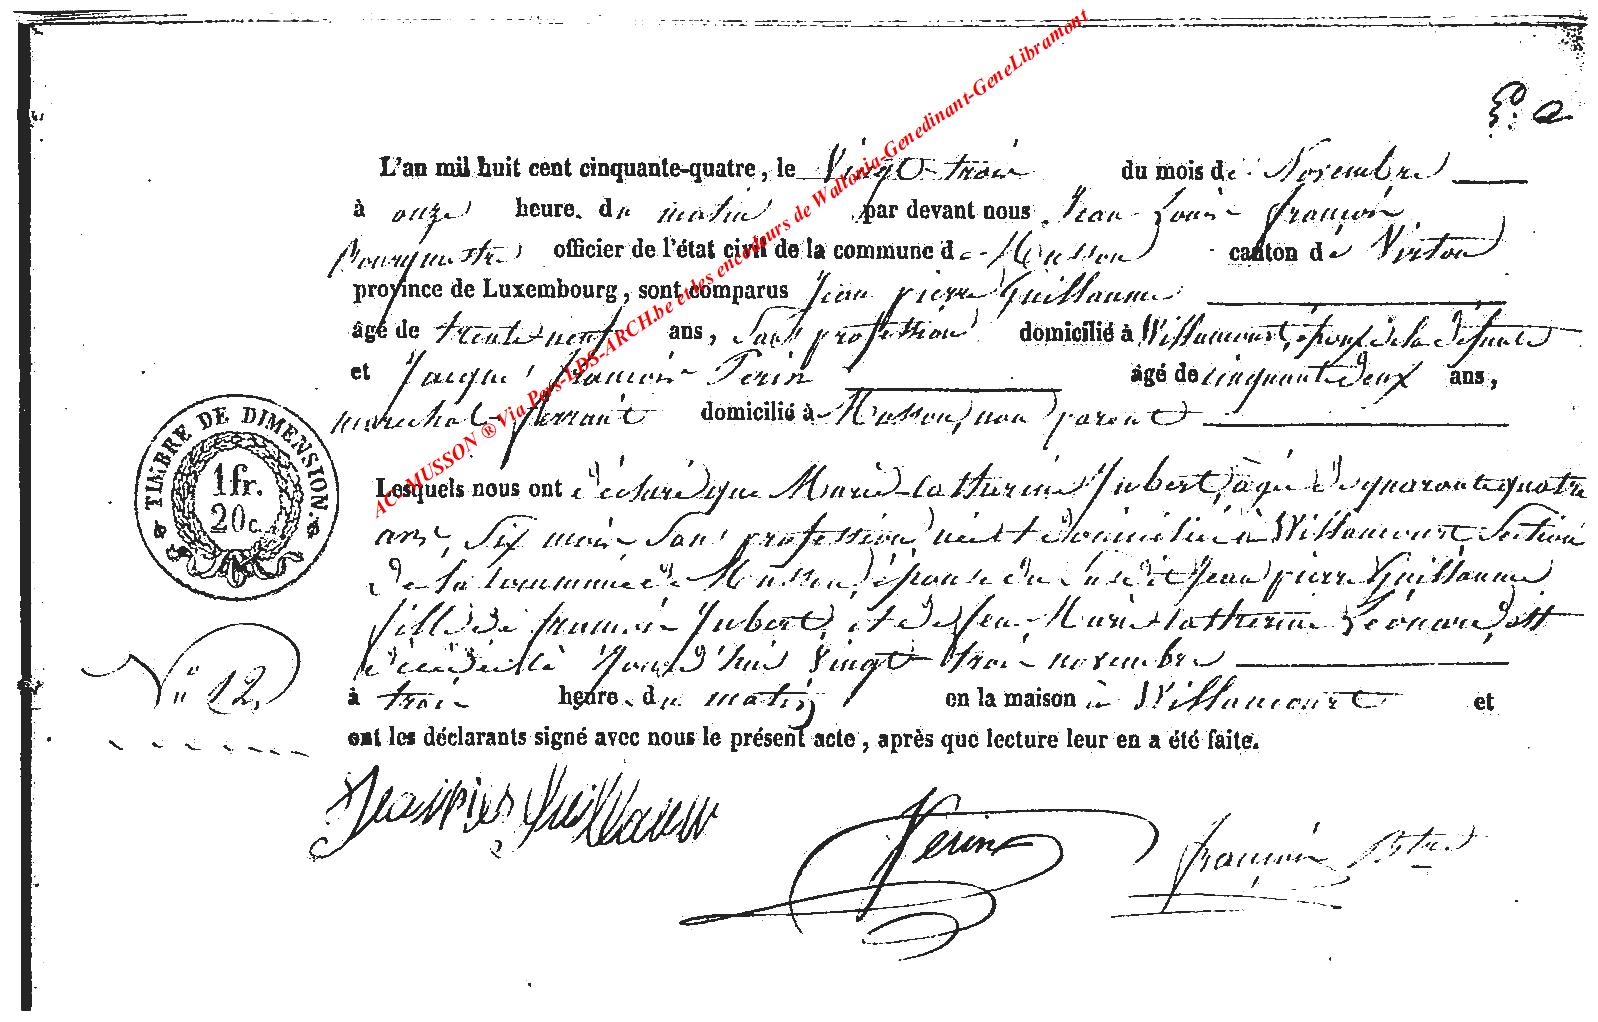 AC. MUSSON ® Via Pers-LDS-ARCH.be et les encodeurs de Wallonia-Genedinant-GeneLibramont
L'an mil huit cent cinquante-quatre, le Vingt-trois du mois de Novembre
à onze heure. du matin par devant nous Jean Louis françois
Bourgmestre officier de l'état civil de la commune de Musson canton de Virton
province de Luxembourg, sont comparus Jean pierre Guillaume
âgé de trente neuf ans, Sans profession domicilié à Willancourt, époux de la défunte
et Jacques françois Perin âgé de cinquante deux ans,
marechal-ferrant domicilié à Musson, non parent
Lesquels nous ont déclaré que Marie-Catherine Jubert, agée de quarante quatre
ans, Six mois, Sans profession, née et domiciliée à Willancourt Section
de la commune de Musson, épouse du Susdit Jean pierre Guillaume
fille de françois Jubert, et de feu Marie Catherine Léonard, est
décédée le Jourd'hui Vingt trois novembre
à trois heure. du matin en la maison à Willancourt et
ont les déclarants signé avec nous le présent acte, après que lecture leur en a été faite.
TIMBRE DE DIMENSION.
1fr.
20c.
N° 12
Jean pier Guillaume
Perin
françois Btre